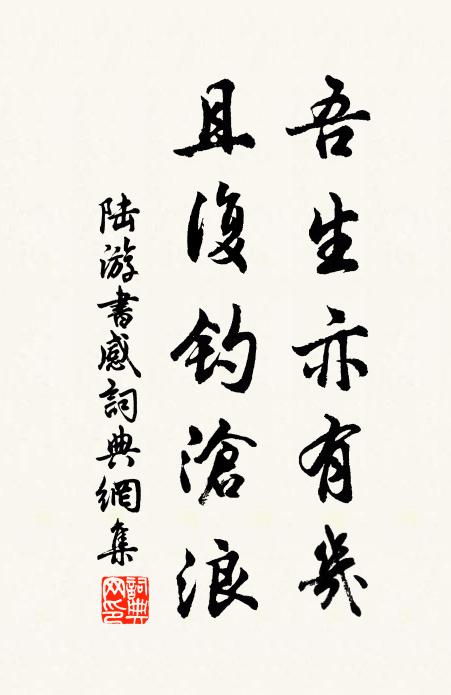 吾生亦有幾
且復釣滄浪
陆游書感詞典網集
詞典網印